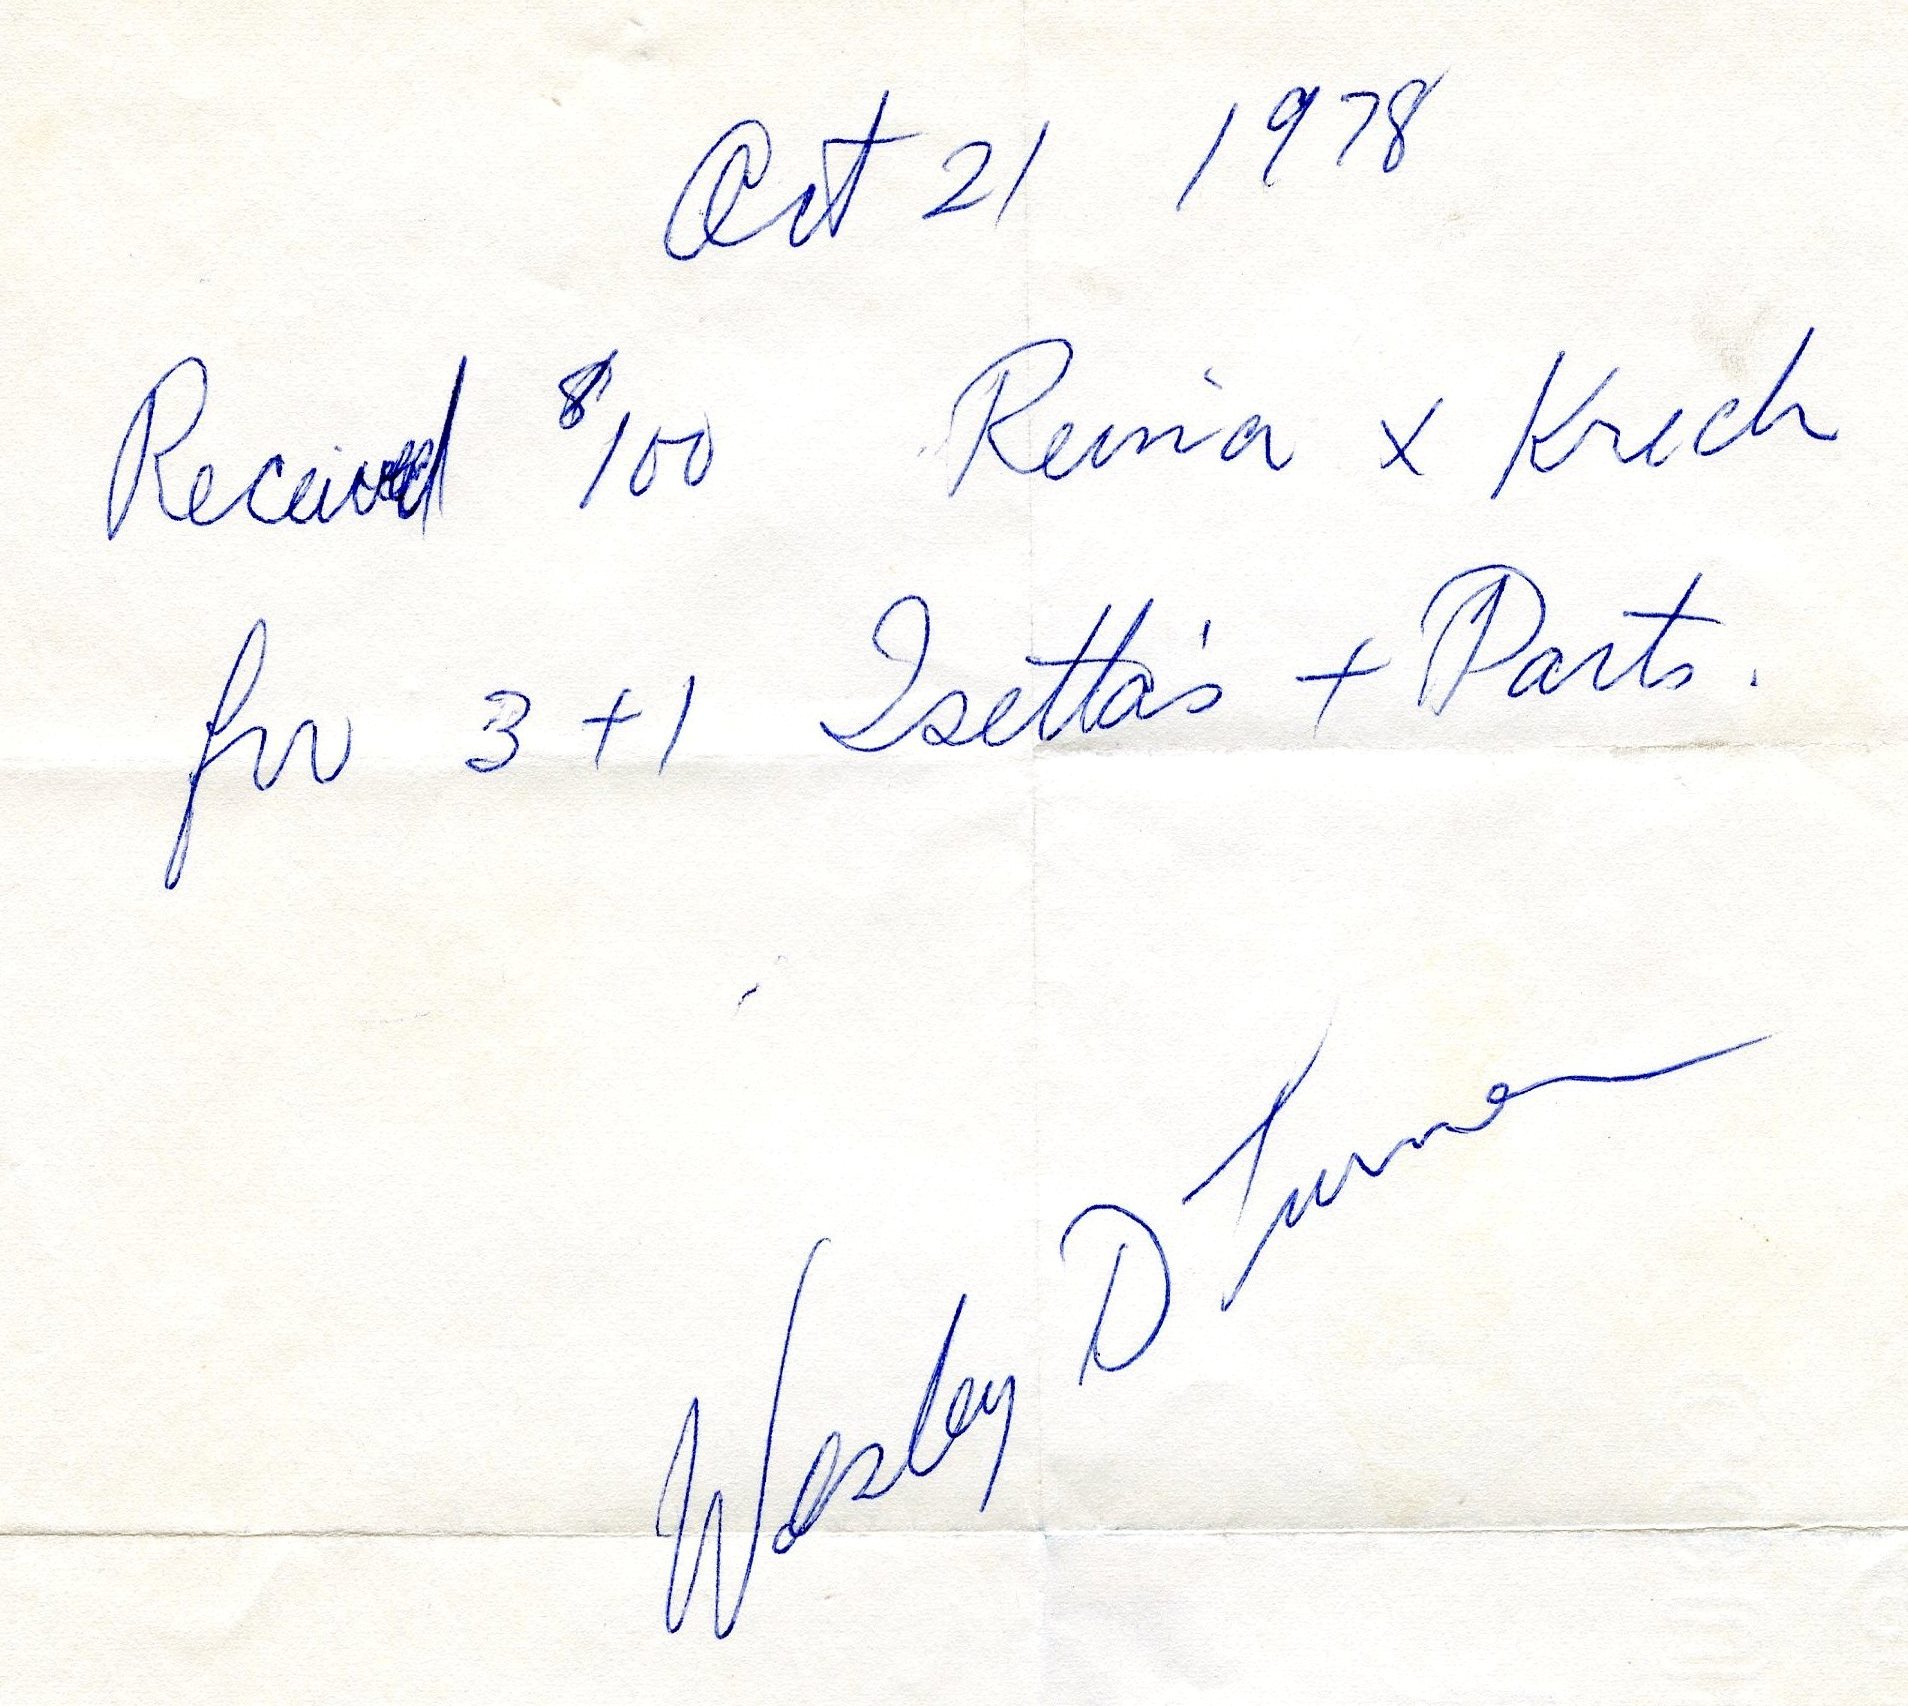 Oct 21 1978
Received $100 Rewia x Krech
for 3 + 1 Isetta's + Parts.
Wesley D Turner